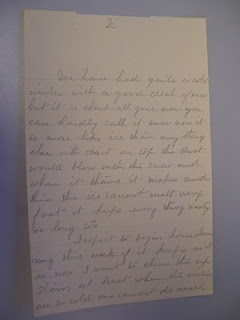 2
One have had quite a cold
winter with a good deal of snow
but it is about all gone now you
can hardly call it snow now it
is more like ice than any thing
else with dust on top the dust
would blow with the snow and
when it thaws it makes mud
then the ice cannot melt very
fast it keeps every thing nasty
so long too
I expect to begin house clean
ing this week if it keeps nice
as now I want to clean the up
stairs at least when the weather
are so cold one cannot do much